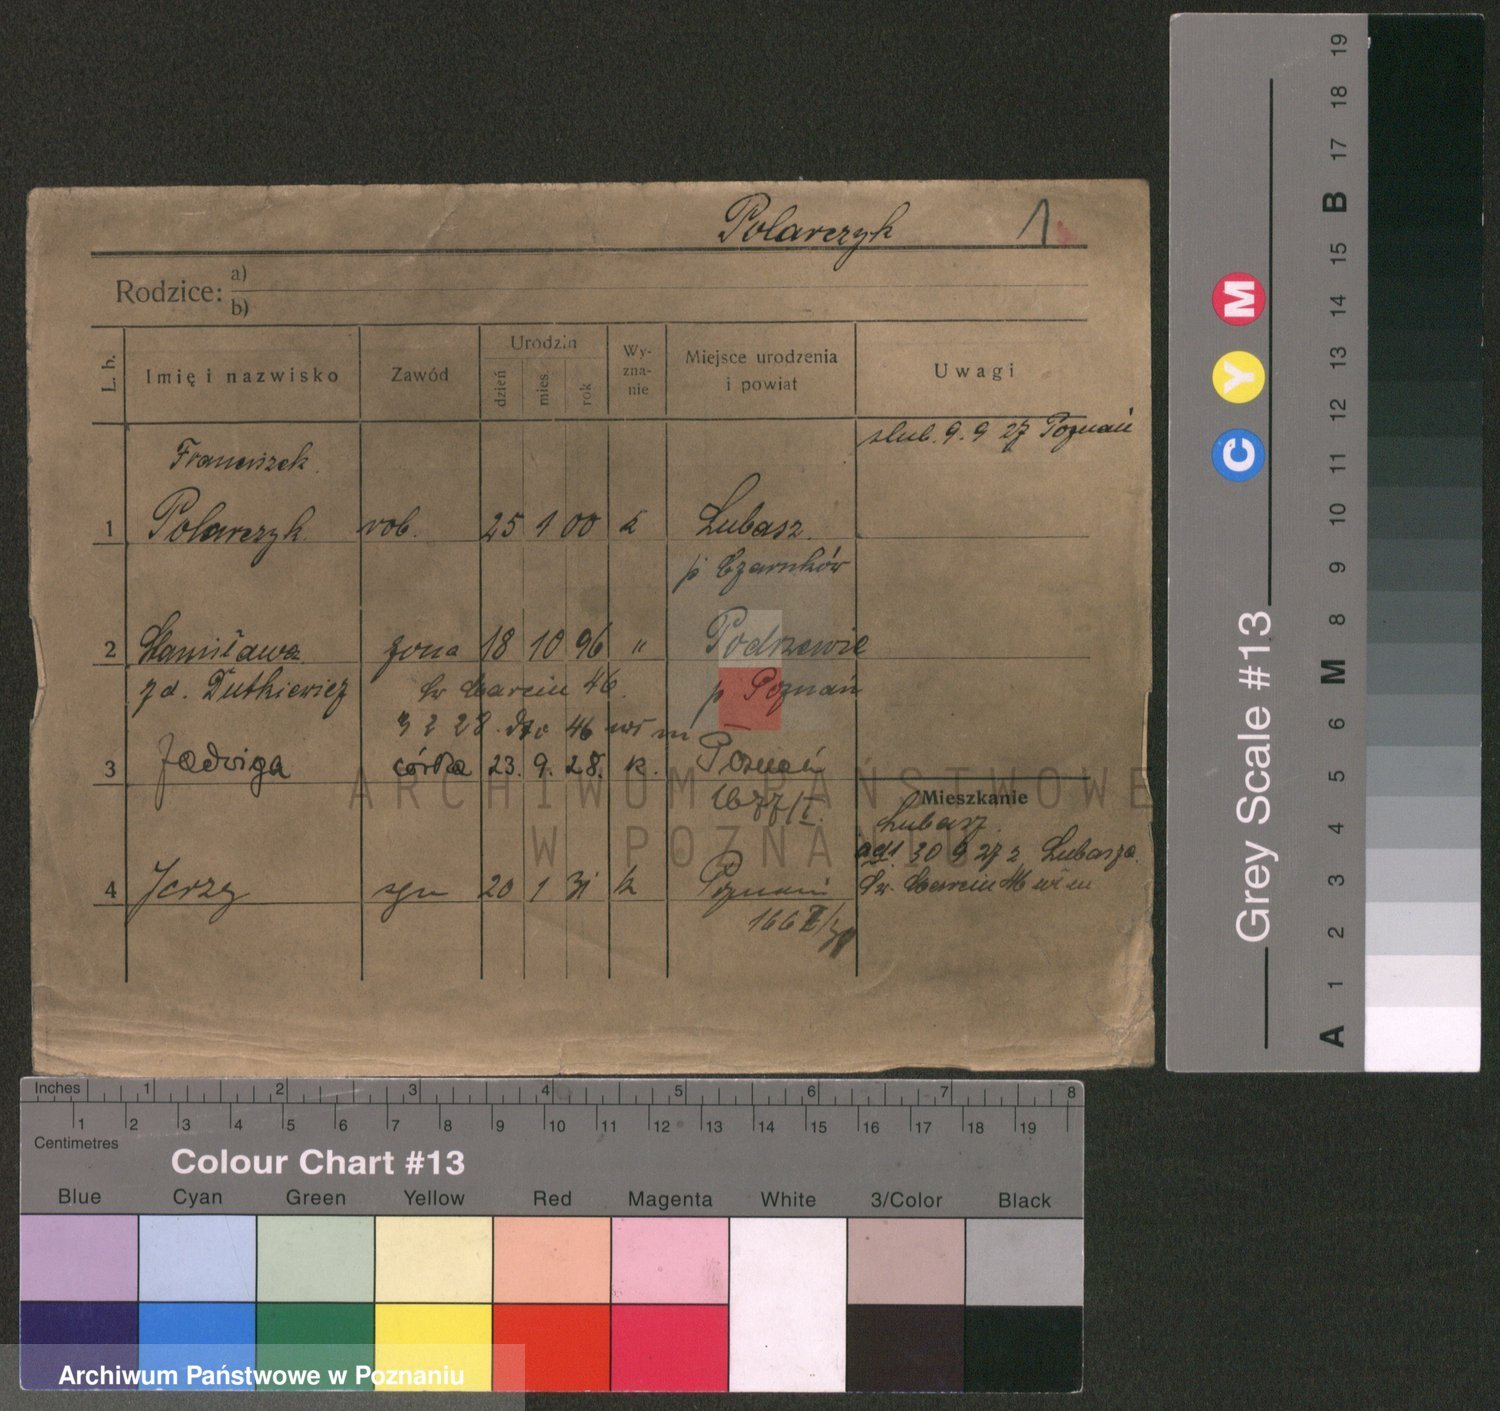 Polarczyk 1
Rodzice: a)
b)
L. b. Imię i nazwisko Zawód Urodzin dzień mies. rok Wy-zna-nie Miejsce urodzenia i powiat Uwagi
ślub. 9. 9 27 Poznań
Franciszek
1 Polarczyk rob. 25 1 00 k Lubasz
p Czarnków
2 Stanisława żona 18 10 96 " Podrzewie
z d. Dutkiewicz Św Marcin 46. p Poznań
3 2 28. dto 46 m
3 Jadwiga córka 23. 9. 28. k. Poznań
1677/I.
Mieszkanie
Lubasz
ad1. 30 9 27 z Lubasza
4 Jerzy syn 20 1 31 k Poznań Św. Marcin 46
ARCHIWUM PAŃSTWOWE
W POZNANIU
Inches 1 2 3 4 5 6 7 8
1 2 3 4 5 6 7 8 9 10 11 12 13 14 15 16 17 18 19
Centimetres
Colour Chart #13
Blue Cyan Green Yellow Red Magenta White 3/Color Black
Archiwum Państwowe w Poznaniu
Grey Scale #13
C Y M
A 1 2 3 4 5 6 M 8 9 10 11 12 13 14 15 B 17 18 19